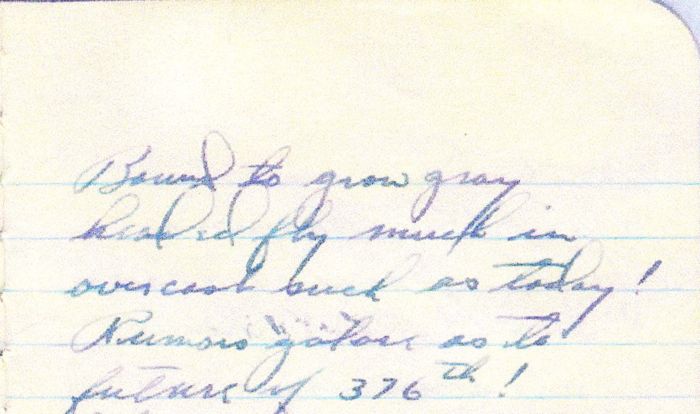 Bound to grow gray
headed fly much in
overcast such as today!
Rumors "galore as to
future of 376th!